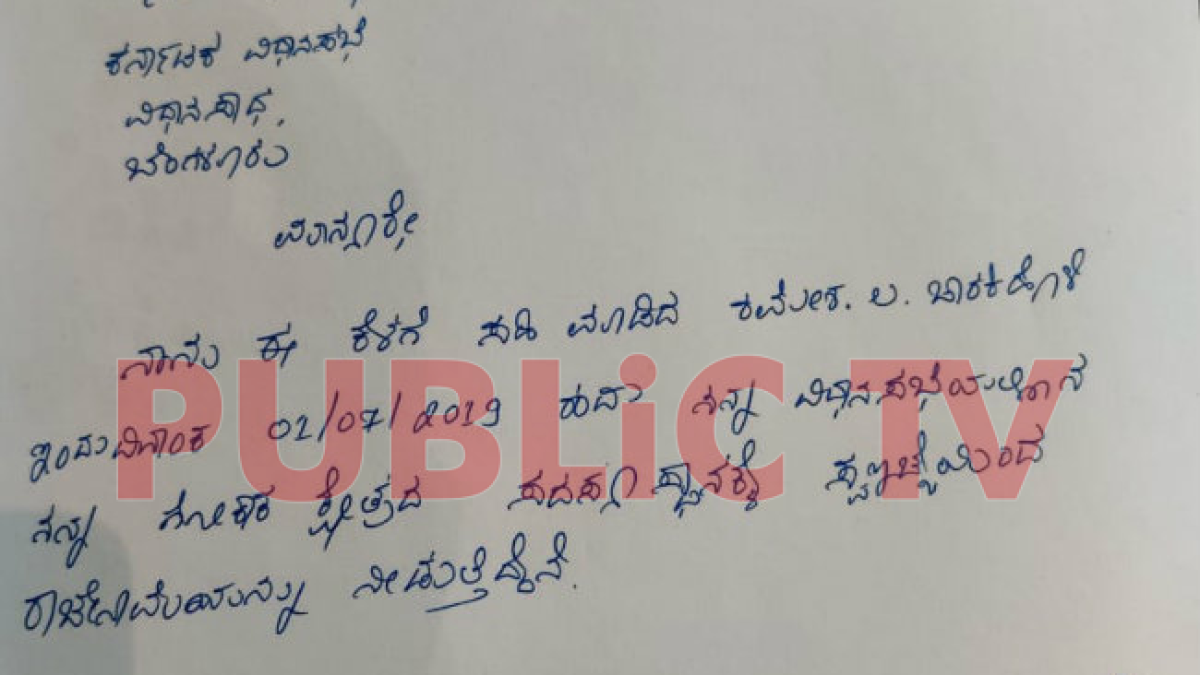 ಕರ್ನಾಟಕ ವಿಧಾನಸಭೆ
ವಿಧಾನಸೌಧ,
ಬೆಂಗಳೂರು
ಮಾನ್ಯರೇ,
ನಾನು ಈ ಕೆಳಗೆ ಸಹಿ ಮಾಡಿದ ರಮೇಶ. ಲ. ಜಾರಕಿಹೊಳಿ
ಇಂದು ದಿನಾಂಕ 01/07/2019 ರಂದು ನನ್ನ ವಿಧಾನಸಭೆಯಲ್ಲಿನ
ನನ್ನ ಗೋಕಾಕ ಕ್ಷೇತ್ರದ ಸದಸ್ಯ ಸ್ಥಾನಕ್ಕೆ ಸ್ವಇಚ್ಛೆಯಿಂದ
ರಾಜೀನಾಮೆಯನ್ನು ನೀಡುತ್ತಿದ್ದೇನೆ.
PUBLiC TV